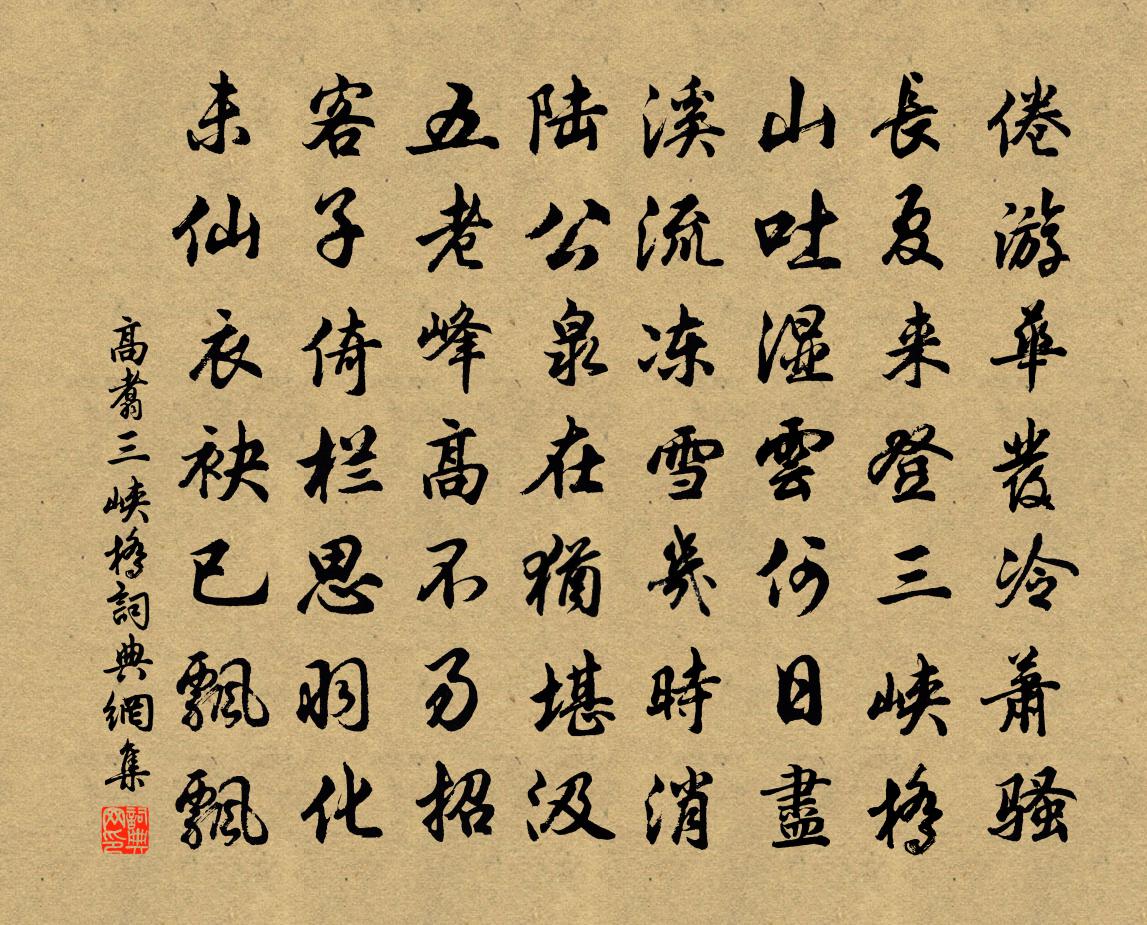 倦游華發冷蕭骚
長夏来登三峽橋
山吐湿雲何日盡
溪流冻雪幾時消
陆公泉在猶堪汲
五老峰高不易招
客子倚栏思羽化
未仙衣袂已飄飄
高翥三峽橋詞典網集
詞典网印